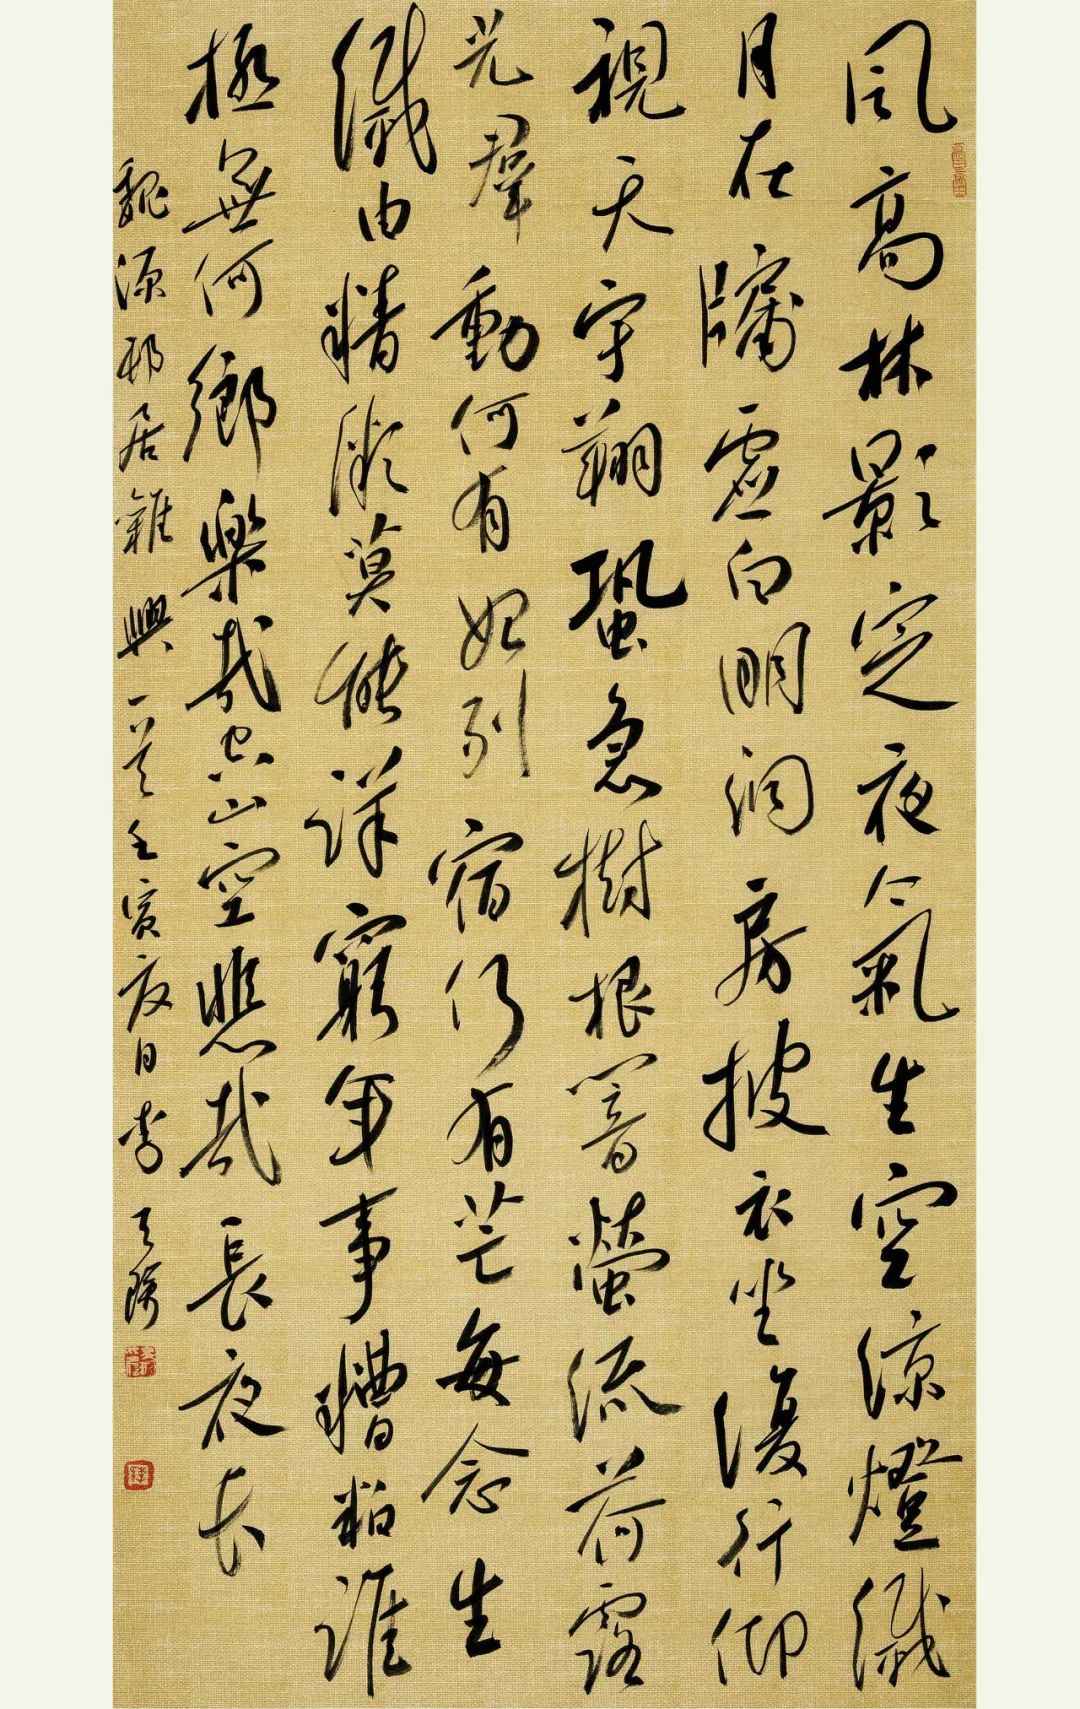 風高林影定夜氣生空涼燈纖
月在牖虛白明洞房披衣坐復行仰
視天宇翔蛩急樹根闇螢流荷露
光羣動何有始列宿仍有芒每念生
纖由精微莫能詳窮年事糟粕誰
極無何鄉樂哉空山空悲哉長夜長
魏源邨居雜興一首壬寅夏日李